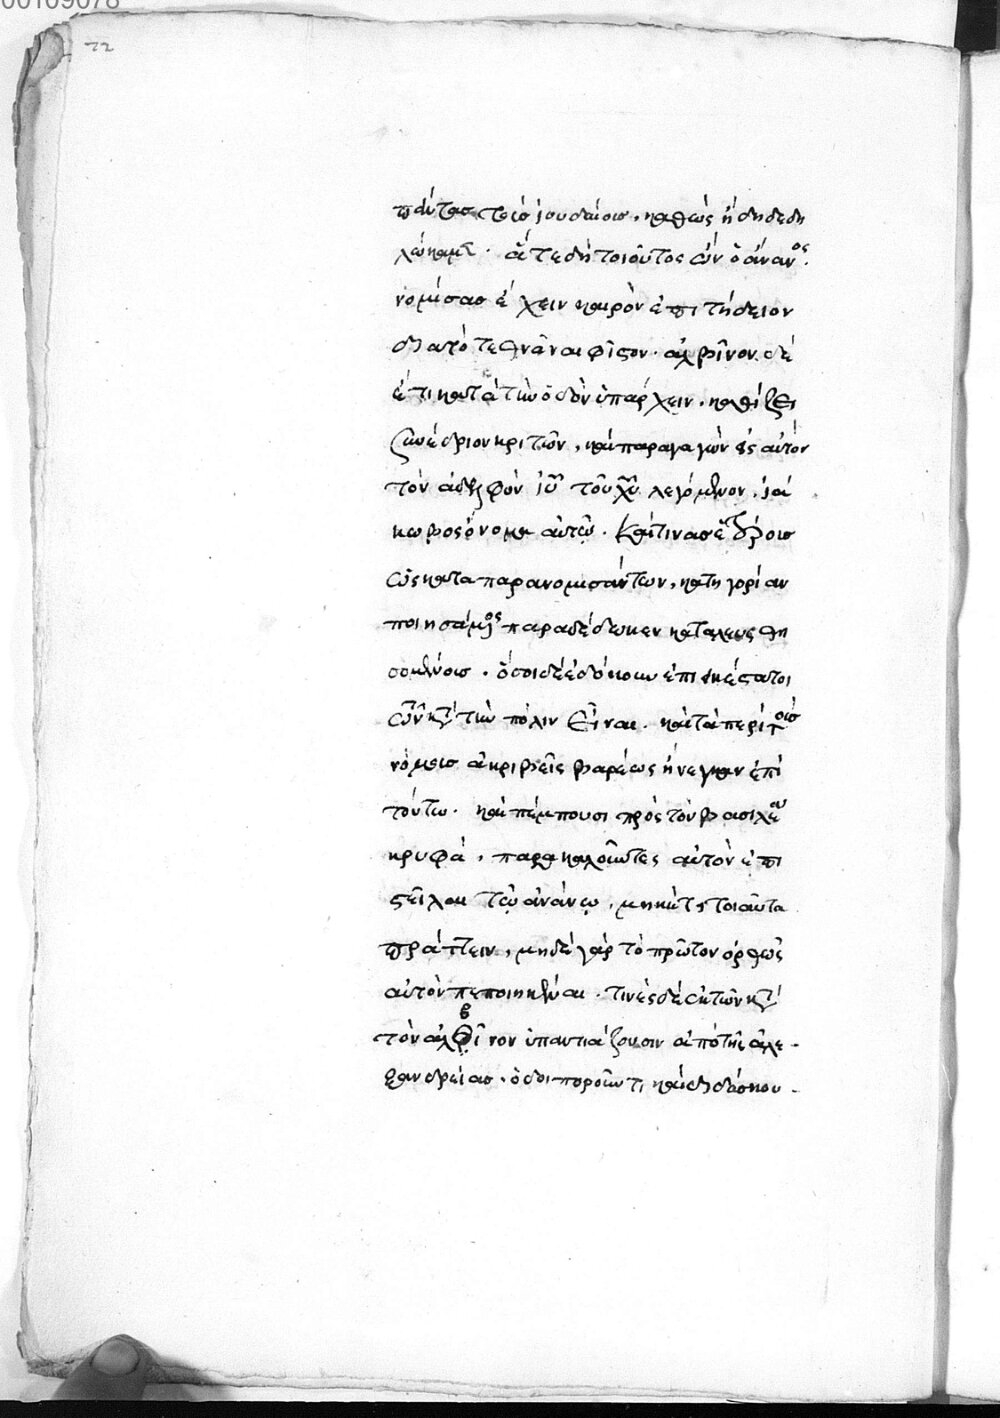 00109078
72
πάντας τοὺς ἰουδαίους, καθὼς ἤδη δεδη
λώκαμεν. ἅτε δὴ τοιοῦτος ὢν ὁ ἄνανος.
νομίσας ἔχειν καιρὸν ἐπιτήδειον
διατὸ τεθνᾶναι φῖστον. ἀλβῖνον δὲ
ἔτι κατὰ τὴν ὁδὸν ὑπάρχειν. καθίζει
συνέδριον κριτῶν, καὶ παραγαγὼν εἰς αὐτὸ
τὸν ἀδελφὸν ἰυ τοῦ χυ λεγομένου. ἰά
κωβος ὄνομα αὐτῷ. καί τινας ἑτέρους
ὡς κατα παρανομισάντων, κατηγορίαν
ποιησάμενος παραδέδωκεν καταλευσθη
σομένους. ὅσοι δὲ ἐδόκουν ἐπιεικέστατοι
τῶν κατὰ τὴν πόλιν εἶναι. καὶ τὰ περὶ τοὺς
νόμους ἀκριβεῖς βαρέως ἤνεγκαν ἐπὶ
τούτω. καὶ πέμπουσι πρὸς τὸν βασιλέα
κρυφά, παρακαλοῦντες αὐτὸν ἐπι
στεῖλαι τῷ ἀνάνῳ. μηκέτι τοιαῦτα
πράττειν, μηδὲ γὰρ τὸ πρῶτον ὀρθῶς
αὐτὸν πεποιηκέναι. τινὲς δὲ ἐκ τῶν καὶ
τὸν ἀλβῖνον ὑπαντιάζουσιν ἀπὸ τῆς ἀλε-
ξανδρείας. ὁδοιποροῦντι, καὶ διδάσκου-